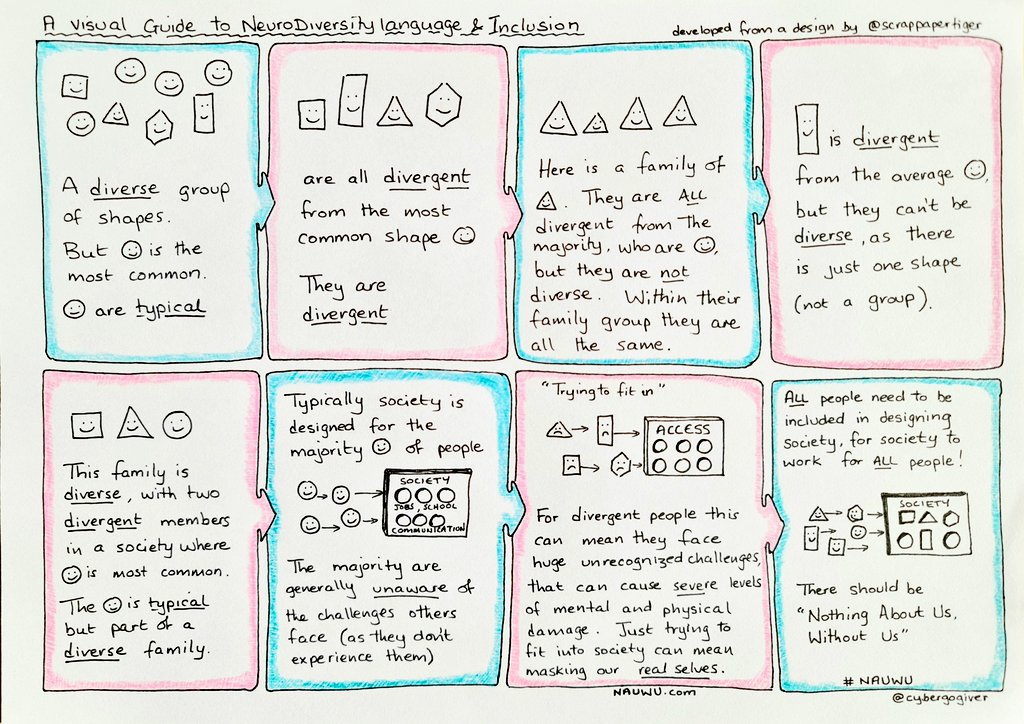 A Visual Guide to NeuroDiversity language & Inclusion
developed from a design by @scrappapertiger
A diverse group
of shapes.
But is the
most common.
are typical
are all divergent
from the most
common shape
They are
divergent
Here is a family of
. They are ALL
divergent from the
majority, who are ,
but they are not
diverse. Within their
family group they are
all the same.
is divergent
from the average ,
but they can't be
diverse, as there
is just one shape
(not a group).
This family is
diverse, with two
divergent members
in a society where
is most common.
The is typical
but part of a
diverse family.
Typically society is
designed for the
majority of people
SOCIETY
JOBS, SCHOOL
COMMUNICATION
The majority are
generally unaware of
the challenges others
face (as they don't
experience them)
"Trying to fit in"
ACCESS
For divergent people this
can mean they face
huge unrecognized challenges,
that can cause severe levels
of mental and physical
damage. Just trying to
fit into society can mean
masking our real selves.
NAUWU.com
ALL people need to be
included in designing
society, for society to
work for ALL people!
SOCIETY
There should be
"Nothing About Us,
Without Us"
# NAUWU
@cybergogiver